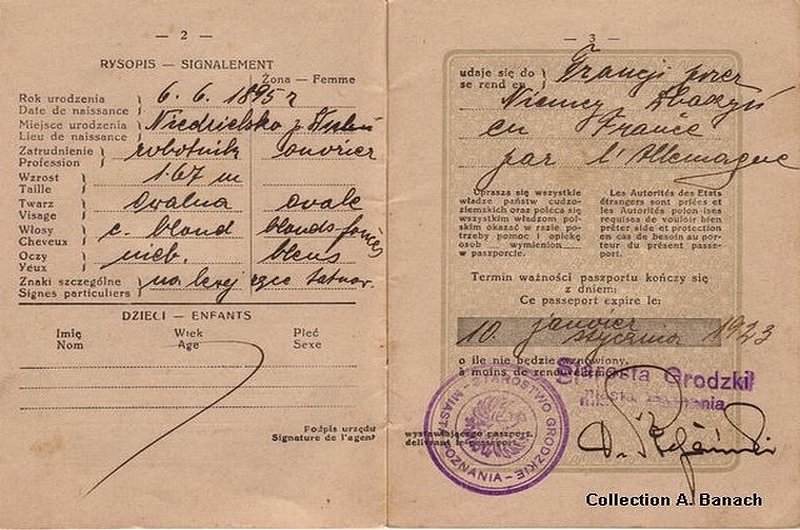 — 2 —
RYSOPIS — SIGNALEMENT
Żona — Femme
Rok urodzenia
Date de naissance
6. 6. 1895 r
Miejsce urodzenia
Lieu de naissance
Niedzielsko p.
Zatrudnienie
Profession
robotnik ouvrier
Wzrost
Taille
1.67 m
Twarz
Visage
owalna ovale
Włosy
Cheveux
c. blond blonds foncés
Oczy
Yeux
nieb. bleus
Znaki szczególne
Signes particuliers
na lewej ręce tatuow.
DZIECI — ENFANTS
Imię Wiek Płeć
Nom Age Sexe
Podpis urzędu
Signature de l'agent
— 3 —
udaje się do
se rend en
Francji przez
Niemcy Zbąszyń
en France
par l'Allemagne
Uprasza się wszystkie
władze państw cudzo-
ziemskich oraz poleca się
wszystkim władzom pol-
skim okazać w razie po-
trzeby pomoc i opiekę
osob — wymienion —
w paszporcie.
Les Autorités des Etats
étrangers sont priées et
les Autorités polon-ises
requises de vouloir bien
prêter aide et protection
en cas de besoin au por-
teur du présent passe-
port.
Termin ważności paszportu kończy się
z dniem:
Ce passeport expire le:
10. janvier
stycznia 1923
o ile nie będzie wznowiony.
à moins de renouvellement.
Starosta Grodzki
miasta Poznania
wystawiającego paszport.
délivrant le passeport.
STAROSTWO GRODZKIE
MIASTA POZNANIA
Collection A. Banach